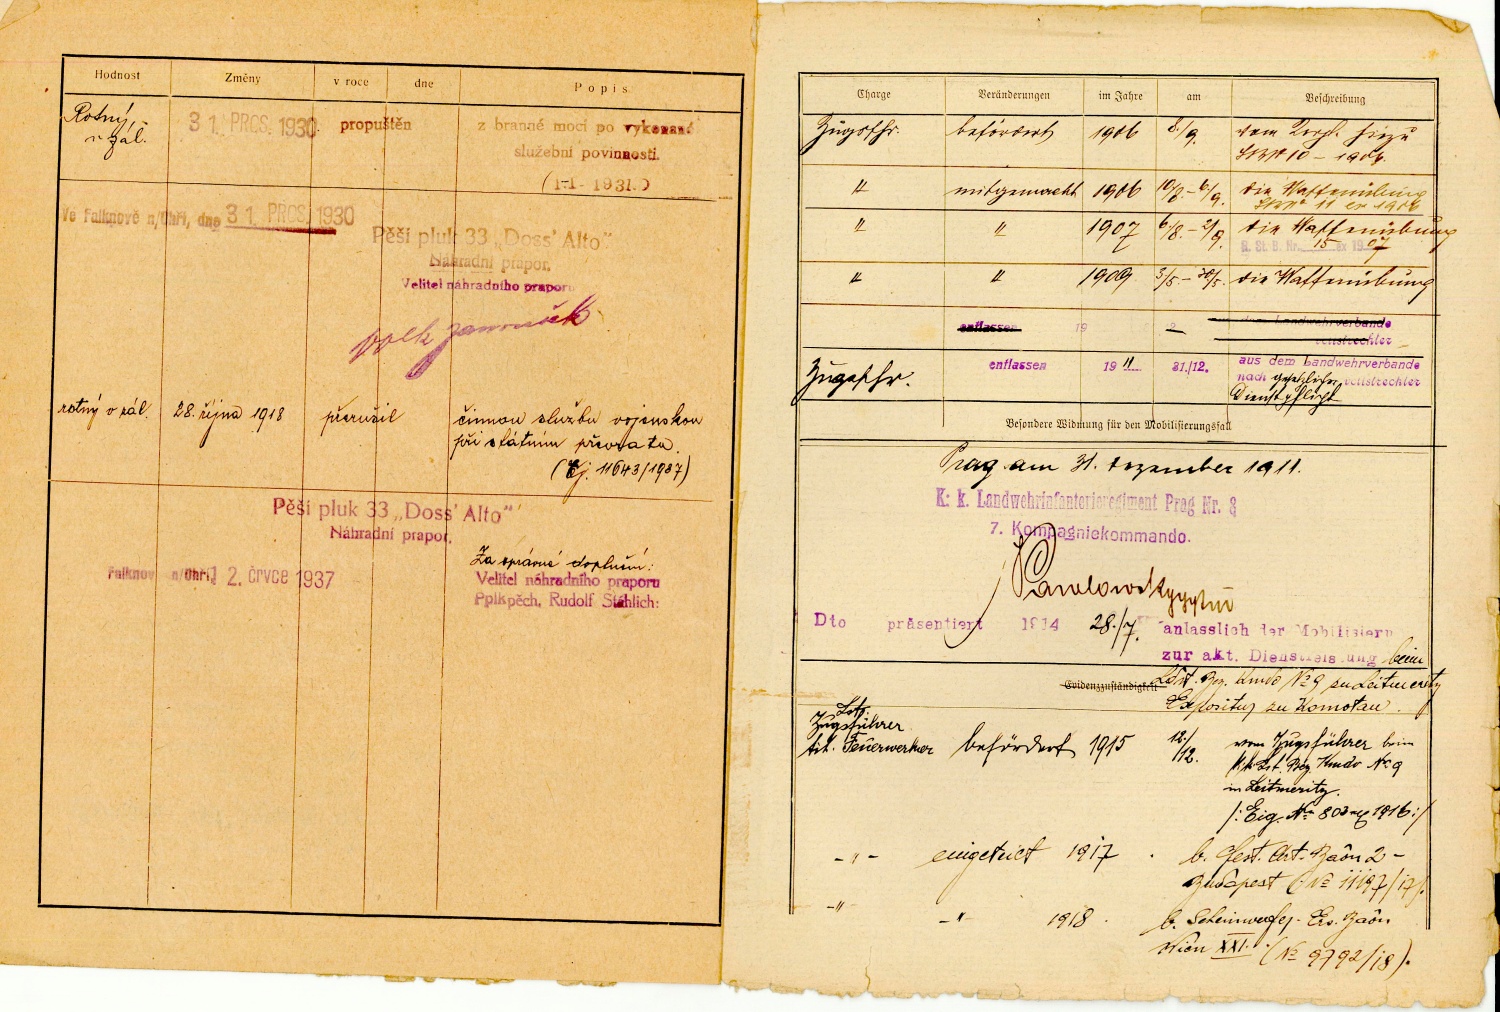 Hodnost Změny v roce dne Popis
Rotný 31. PROS. 1930 propuštěn z branné moci po vykonané
v zál. služební povinnosti.
(1-I- 1931.)
Ve Falknově n/Ohří, dne 31. PROS. 1930
Pěší pluk 33 „Doss' Alto"
Náhradní prapor.
Velitel náhradního praporu
rotný v zál. 28. října 1918 přerušil činnou službu vojenskou
při státním převratu.
(Čj. 11643/1937)
Pěší pluk 33 „Doss' Alto"
Náhradní prapor.
Za správné doplnění:
Falknov n/Ohří, 12. črvce 1937 Velitel náhradního praporu
Pplk pěch. Rudolf Stáhlich:
Charge Veränderungen im Jahre am Beschreibung
Zugsfhr. befördert 1906 8./9. vom
10 - 1906.
" mitgemacht 1906 10/8. - 6/9. die Waffenübung
11 ex 1906
" " 1907 6/8. - 2/9. die Waffenübung
R. St. B. Nr. 15 ex 1907
" " 1909 3/5. - 30/5. die Waffenübung
entlassen 19 aus dem Landwehrverbande
Zugsfhr. entlassen 1911 31./12. aus dem Landwehrverbande
nach gesetzlicher vollstreckter
Dienstpflicht
Besondere Widmung für den Mobilisierungsfall
Prag am 31. Dezember 1911.
K. k. Landwehrinfanterieregiment Prag Nr. 8
7. Kompagniekommando.
Dto präsentiert 1914 28./7. anlasslich der Mobilisierung
zur akt. Dienstleistung beim
Evidenzzuständigkeit Ldst. Bez. Kmdo No 9 zu Leitmeritz
Expositur zu Komotau.
Lst.
Zugsführer
tit. Feuerwerker befördert 1915 12./12. vom Zugsführer beim
kk Lst. Bez. Kmdo No 9
in Leitmeritz.
/: Eig. No 803 1916 :/
- " - eingeteilt 1917 b. Fest. Art. Baon 2 -
Budapest (No 11197/17).
- " - - " - 1918 b. Scheinwerfer - Ers. Baon
Wien XXI. (No 9792/18).